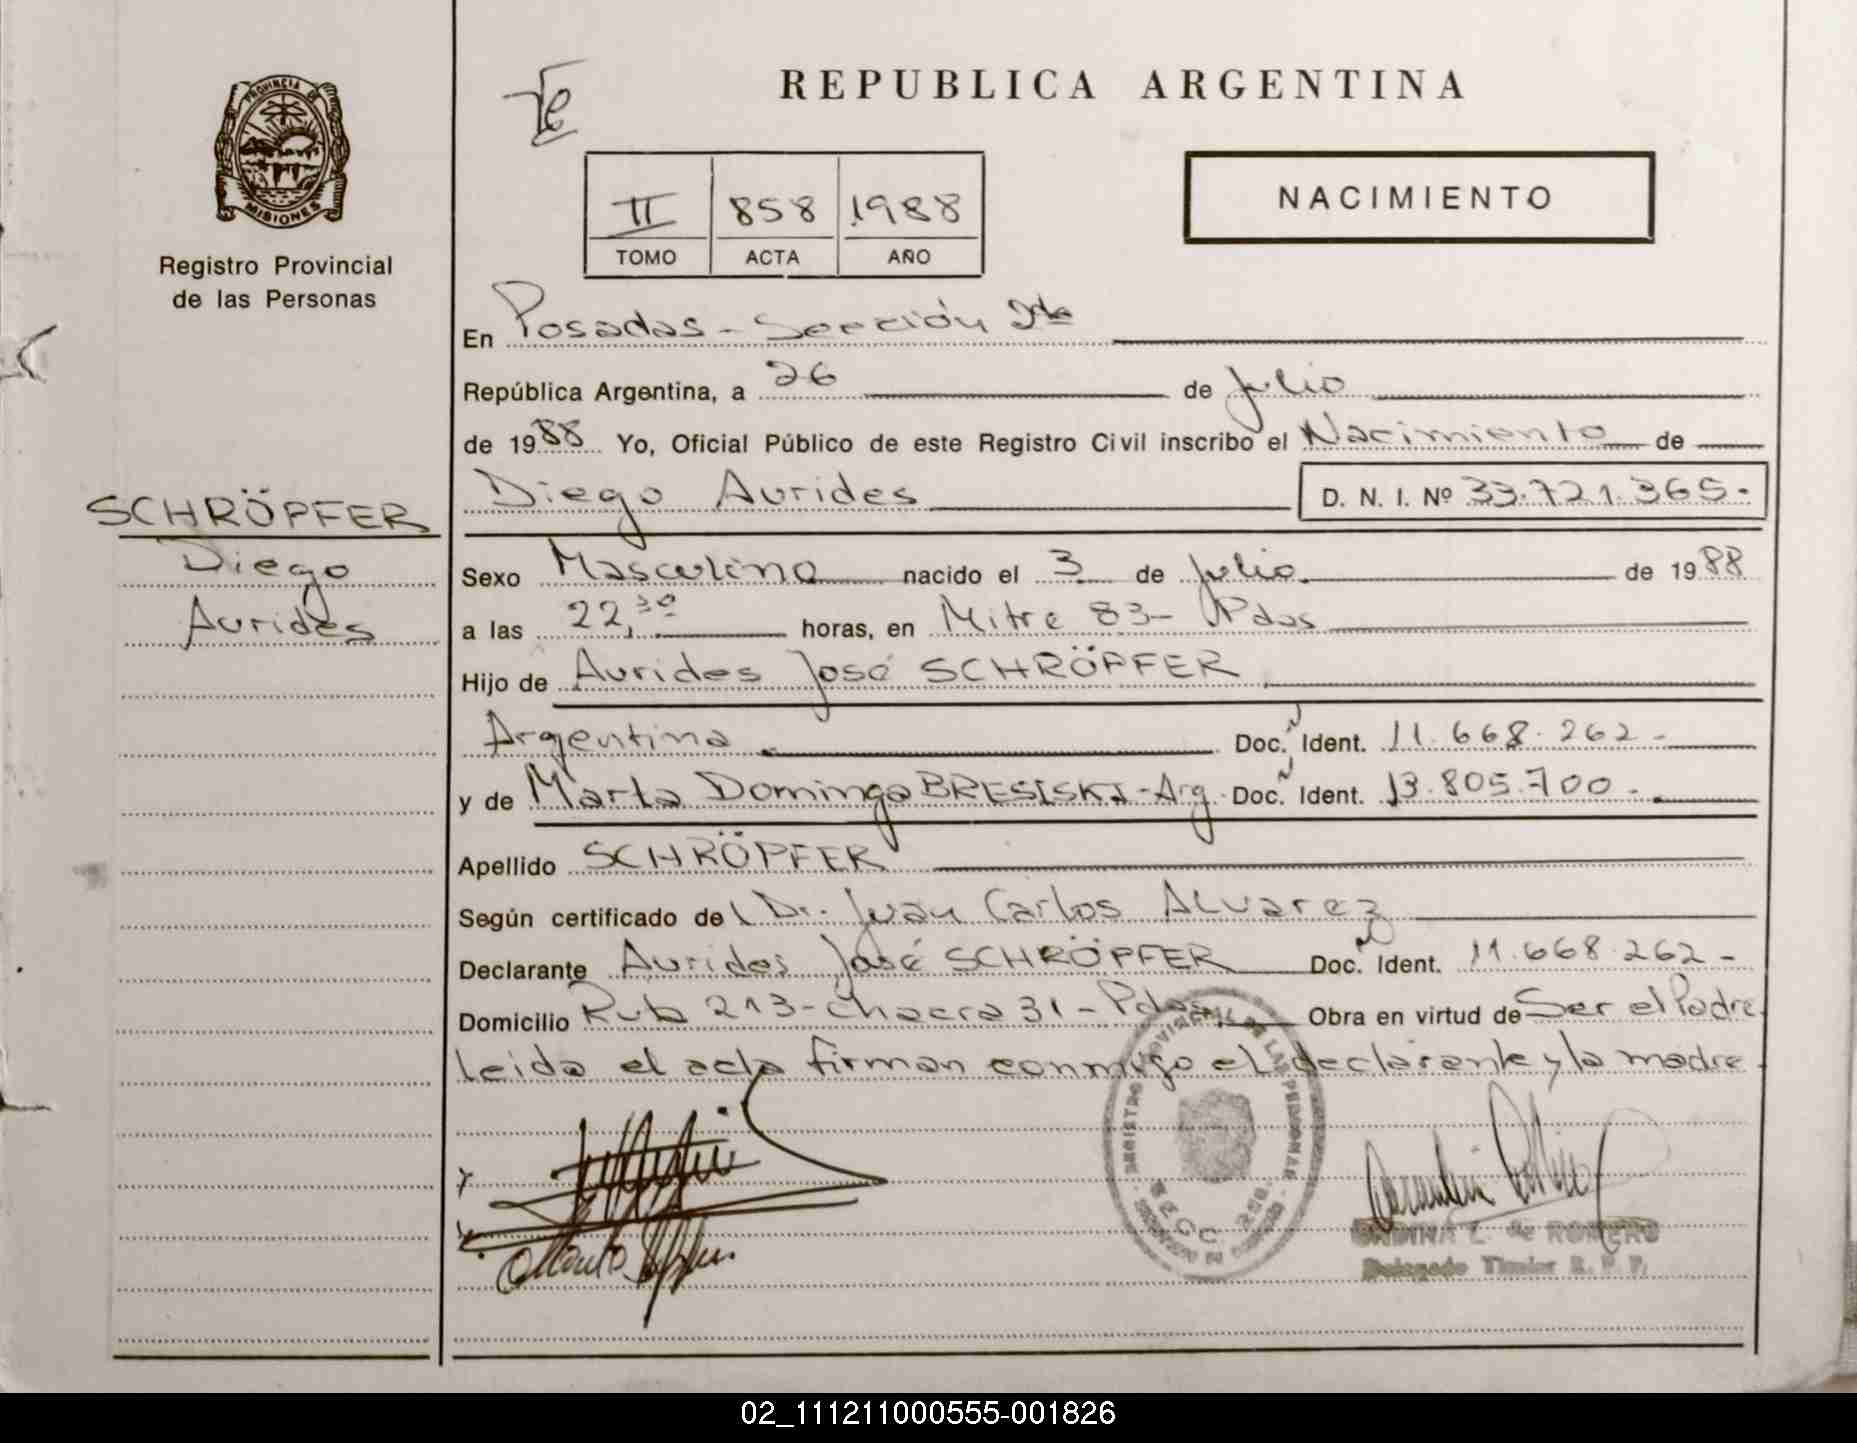 PROVINCIA DE
MISIONES
Registro Provincial
de las Personas
SCHRÖPFER
Diego
Aurides
REPUBLICA ARGENTINA
II 858 1988
TOMO ACTA AÑO
NACIMIENTO
En Posadas - Sección 2da
República Argentina, a 26 de Julio
de 1988 Yo, Oficial Público de este Registro Civil inscribo el Nacimiento de
Diego Aurides D. N. I. Nº 33.721.365.-
Sexo Masculino nacido el 3 de Julio. de 1988
a las 22,30 horas, en Mitre 83- Pdas
Hijo de Aurides José SCHRÖPFER
Argentina Doc. Ident. 11.668.262-
y de Marta Dominga BRESISKI-Arg. Doc. Ident. 13.805.700.-
Apellido SCHRÖPFER
Según certificado de Dr. Juan Carlos ALvarez
Declarante Aurides José SCHRÖPFER Doc. Ident. 11.668.262-
Domicilio Ruta 213-chacra 31-Pdas Obra en virtud de Ser el Padre.
Leida el acta firman conmigo el declarante y la madre.
de ROMERO
Titular R. P. P.
02_111211000555-001826